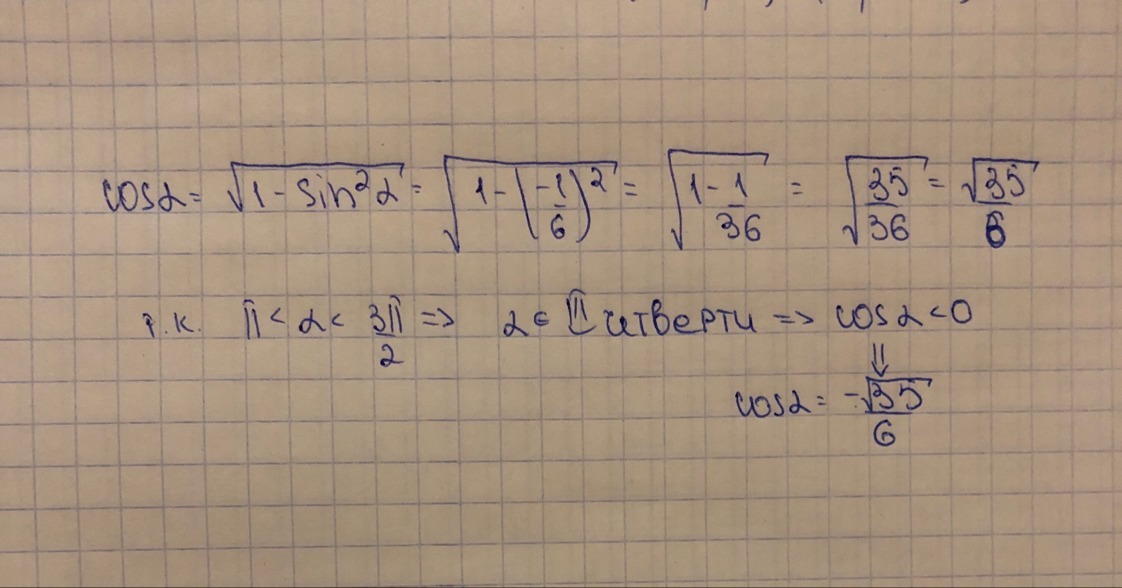 cosα = √(1 - sin²α) = √(1 - (-1/6)²) = √(1 - 1/36) = √(35/36) = √35/6
т.к. π < α < 3π/2 => α ∈ II четверти => cosα < 0
⇓
cosα = -√35/6